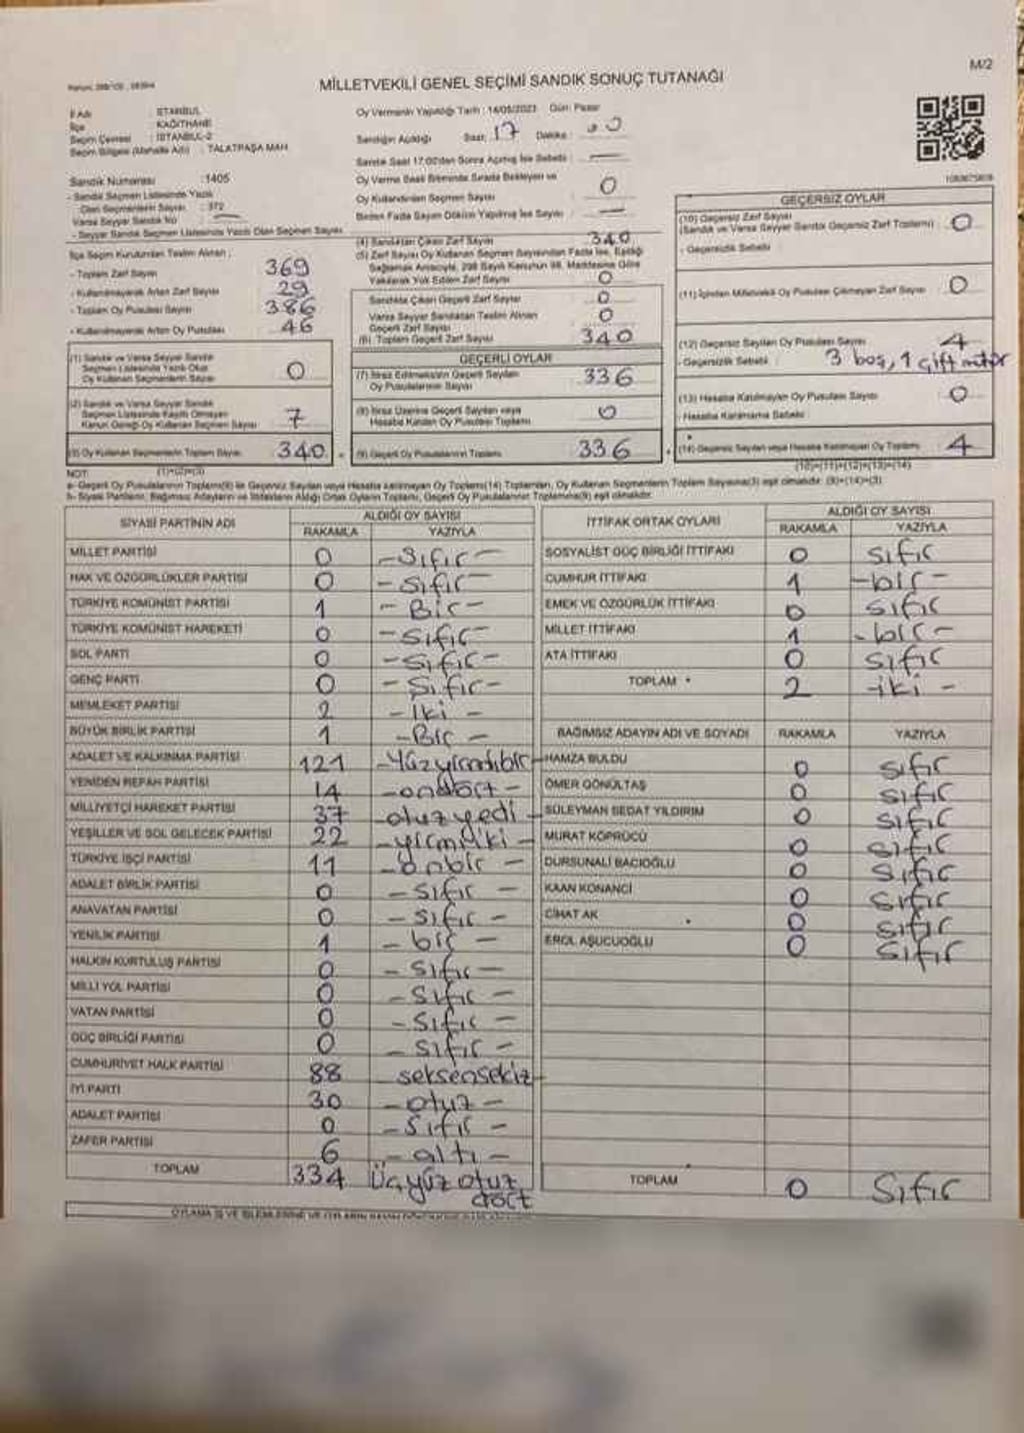 M/2
MİLLETVEKİLİ GENEL SEÇİMİ SANDIK SONUÇ TUTANAĞI
İl Adı : İSTANBUL
İlçe : KAĞITHANE
Seçim Çevresi : İSTANBUL-2
Seçim Bölgesi (Mahalle Adı) : TALATPAŞA MAH.
Sandık Numarası :1405
- Sandık Seçmen Listesinde Yazılı
Olan Seçmenlerin Sayısı : 372
Varsa Seyyar Sandık No
- Seyyar Sandık Seçmen Listesinde Yazılı Olan Seçmen Sayısı
İlçe Seçim Kurulundan Teslim Alınan :
- Toplam Zarf Sayısı 369
- Kullanılmayarak Artan Zarf Sayısı 29
- Toplam Oy Pusulası Sayısı 386
- Kullanılmayarak Artan Oy Pusulası 46
(1) Sandık ve Varsa Seyyar Sandık
Seçmen Listesinde Yazılı Olup
Oy Kullanan Seçmenlerin Sayısı 0
(2) Sandık ve Varsa Seyyar Sandık
Seçmen Listesinde Kayıtlı Olmayan
Kanun Gereği Oy Kullanan Seçmen Sayısı 7
(3) Oy Kullanan Seçmenlerin Toplam Sayısı 340
(1)+(2)=(3)
Oy Vermenin Yapıldığı Tarih : 14/05/2023 Gün: Pazar
Sandığın Açıldığı Saat: 17 Dakika :
Sandık Saat 17:00'den Sonra Açılmış İse Sebebi : —
Oy Verme Saati Bitiminde Sırada Bekleyen ve
Oy Kullandırılan Seçmen Sayısı : 0
Birden Fazla Sayım Döküm Yapılmış İse Sayısı : —
(4) Sandıktan Çıkan Zarf Sayısı 340
(5) Zarf Sayısı Oy Kullanan Seçmen Sayısından Fazla İse, Eşitliği
Sağlamak Amacıyla, 298 Sayılı Kanunun 98. Maddesine Göre
Yakılarak Yok Edilen Zarf Sayısı 0
Sandıkta Çıkan Geçerli Zarf Sayısı 0
Varsa Seyyar Sandıktan Teslim Alınan
Geçerli Zarf Sayısı 0
(6) Toplam Geçerli Zarf Sayısı 340
GEÇERLİ OYLAR
(7) İtiraz Edilmeksizin Geçerli Sayılan
Oy Pusulalarının Sayısı 336
(8) İtiraz Üzerine Geçerli Sayılan veya
Hesaba Katılan Oy Pusulası Toplamı 0
(9) Geçerli Oy Pusulalarının Toplamı 336
GEÇERSİZ OYLAR
(10) Geçersiz Zarf Sayısı
(Sandık ve Varsa Seyyar Sandık Geçersiz Zarf Toplamı) 0
- Geçersizlik Sebebi
(11) İçinden Milletvekili Oy Pusulası Çıkmayan Zarf Sayısı 0
(12) Geçersiz Sayılan Oy Pusulası Sayısı 4
- Geçersizlik Sebebi : 3 boş, 1 çift mühür
(13) Hesaba Katılmayan Oy Pusulası Sayısı 0
- Hesaba Katılmama Sebebi :
(14) Geçersiz Sayılan veya Hesaba Katılmayan Oy Toplamı 4
(10)+(11)+(12)+(13)=(14)
NOT:
a- Geçerli Oy Pusulalarının Toplamı(9) ile Geçersiz Sayılan veya Hesaba Katılmayan Oy Toplamı(14) Toplamları, Oy Kullanan Seçmenlerin Toplam Sayısına(3) eşit olmalıdır. (9)+(14)=(3)
b- Siyasi Partilerin, Bağımsız Adayların ve İttifakların Aldığı Ortak Oyların Toplamı, Geçerli Oy Pusulalarının Toplamına(9) eşit olmalıdır.
SİYASİ PARTİNİN ADI ALDIĞI OY SAYISI
RAKAMLA YAZIYLA
MİLLET PARTİSİ 0 -Sıfır-
HAK VE ÖZGÜRLÜKLER PARTİSİ 0 -Sıfır-
TÜRKİYE KOMÜNİST PARTİSİ 1 -Bir-
TÜRKİYE KOMÜNİST HAREKETİ 0 -Sıfır-
SOL PARTİ 0 -Sıfır-
GENÇ PARTİ 0 -Sıfır-
MEMLEKET PARTİSİ 2 -İki-
BÜYÜK BİRLİK PARTİSİ 1 -Bir-
ADALET VE KALKINMA PARTİSİ 121 -Yüzyirmibir-
YENİDEN REFAH PARTİSİ 14 -ondört-
MİLLİYETÇİ HAREKET PARTİSİ 37 -otuzyedi-
YEŞİLLER VE SOL GELECEK PARTİSİ 22 -yirmiiki-
TÜRKİYE İŞÇİ PARTİSİ 11 -onbir-
ADALET BİRLİK PARTİSİ 0 -sıfır-
ANAVATAN PARTİSİ 0 -sıfır-
YENİLİK PARTİSİ 1 -bir-
HALKIN KURTULUŞ PARTİSİ 0 -Sıfır-
MİLLİ YOL PARTİSİ 0 -Sıfır-
VATAN PARTİSİ 0 -Sıfır-
GÜÇ BİRLİĞİ PARTİSİ 0 -sıfır-
CUMHURİYET HALK PARTİSİ 88 seksensekiz-
İYİ PARTİ 30 -otuz-
ADALET PARTİSİ 0 -Sıfır-
ZAFER PARTİSİ 6 -altı-
TOPLAM 334 Üçyüzotuz
dört
İTTİFAK ORTAK OYLARI ALDIĞI OY SAYISI
RAKAMLA YAZIYLA
SOSYALİST GÜÇ BİRLİĞİ İTTİFAKI 0 sıfır
CUMHUR İTTİFAKI 1 -bir-
EMEK VE ÖZGÜRLÜK İTTİFAKI 0 sıfır
MİLLET İTTİFAKI 1 -bir-
ATA İTTİFAKI 0 sıfır
TOPLAM 2 -iki-
BAĞIMSIZ ADAYIN ADI VE SOYADI RAKAMLA YAZIYLA
HAMZA BULDU 0 sıfır
ÖMER GÖNÜLTAŞ 0 sıfır
SÜLEYMAN SEDAT YILDIRIM 0 sıfır
MURAT KÖPRÜCÜ 0 sıfır
DURSUNALİ BACIOĞLU 0 sıfır
KAAN KONANCI 0 sıfır
CİHAT AK 0 sıfır
EROL AŞUCUOĞLU 0 sıfır
TOPLAM 0 Sıfır